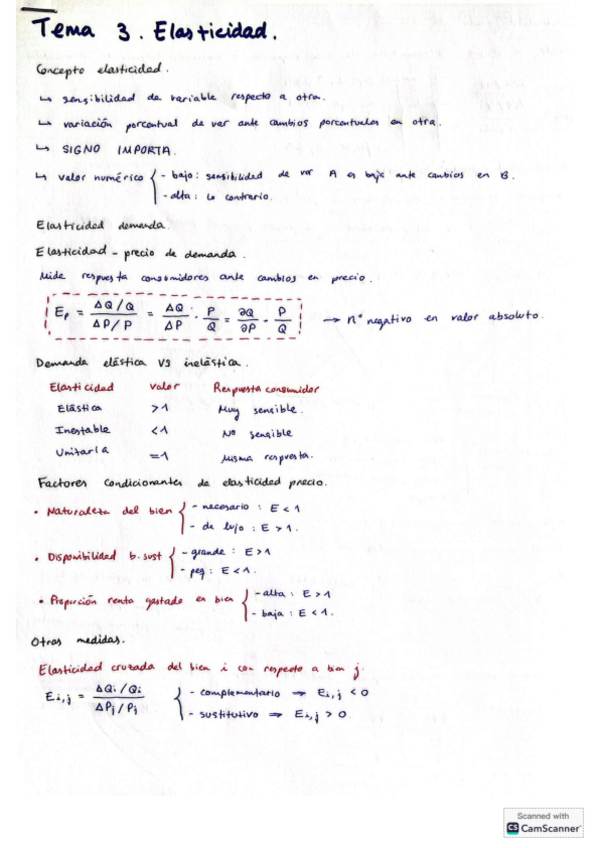 Tema 3. Elasticidad.
Concepto elasticidad.
↳ sensibilidad de variable respecto a otra.
↳ variación porcentual de var ante cambios porcentuales en otra.
↳ SIGNO IMPORTA.
↳ valor numérico { - bajo: sensibilidad de var A es baja ante cambios en B.
- alta: lo contrario.
Elasticidad demanda.
Elasticidad - precio de demanda.
Mide respuesta consumidores ante cambios en precio.
Ep = ΔQ/Q / ΔP/P = ΔQ/ΔP · P/Q = ∂Q/∂P · P/Q → nº negativo en valor absoluto.
Demanda elástica VS inelástica.
Elasticidad valor Respuesta consumidor
Elástica >1 Muy sensible.
Inestable <1 No sensible
Unitaria =1 Misma respuesta.
Factores condicionantes de elasticidad precio.
• Naturaleza del bien { - necesario: E < 1
- de lujo: E > 1.
• Disponibilidad b. sust { - grande: E>1
- peq: E<1.
• Proporción renta gastada en bien { - alta: E >1
- baja: E <1.
Otras medidas.
Elasticidad cruzada del bien i con respecto a bien j.
Ei,j = ΔQi/Qi / ΔPj/Pj { - complementario ⇒ Ei,j <0
- sustitutivo ⇒ Ei,j >0.
Scanned with
CS CamScanner